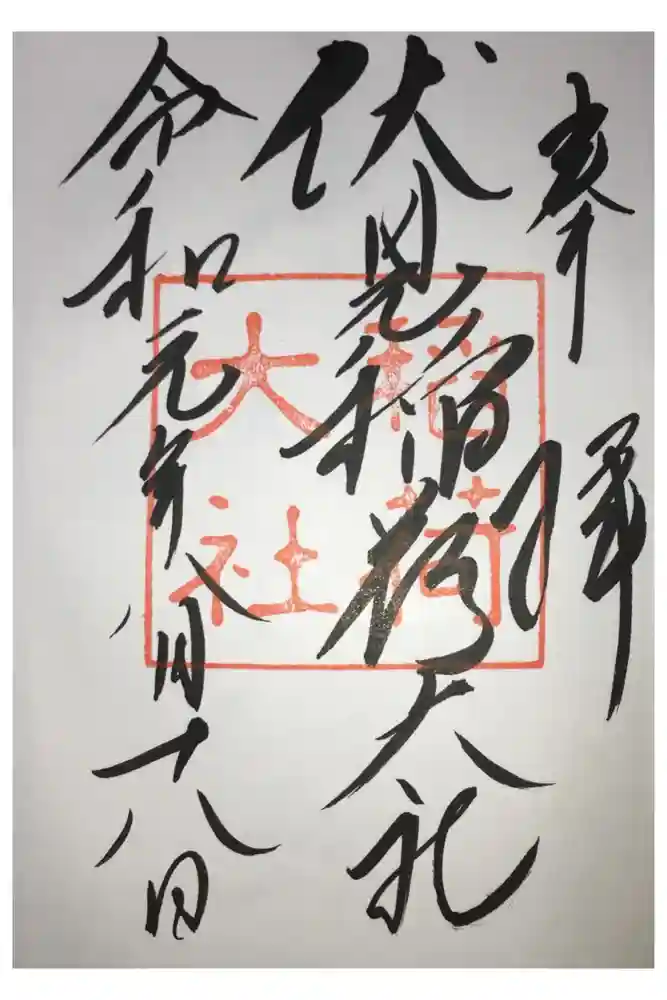 奉拝
伏見稲荷大社
令和元年八月十八日
稲荷
大社